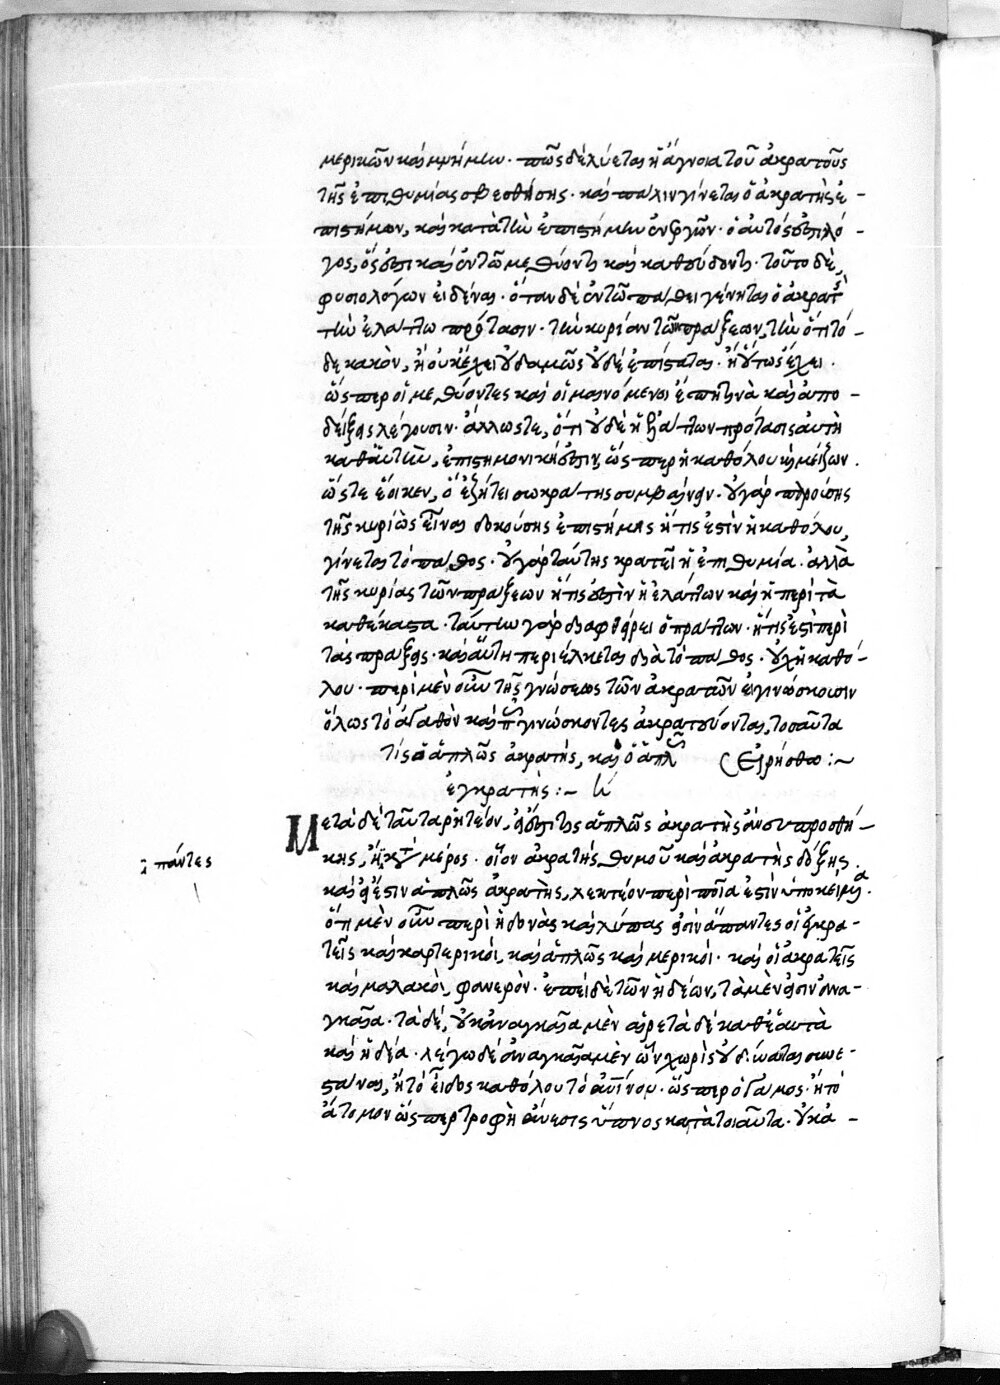 μερικῶν καὶ μνήμην. πῶς δὲ λύεται ἡ ἄγνοια τοῦ ἀκρατοῦς
τῆς ἐπιθυμίας σβεσθείσης. καὶ πάλιν γίνεται ὁ ἀκρατὴς ἐ-
πιστήμων, καὶ κατὰ τὴν ἐπιστήμην ἐνεργῶν. ὁ αὐτός ἐστι λό-
γος, ὅς ἐστι καὶ ἐν τῶ μεθύοντι καὶ καθεύδοντι. τοῦτο δὲ,
φυσιολόγων εἰδέναι. ὅταν δὲ ἐν τῶ πάθει γένηται ὁ ἀκρατὴς
τὴν ἐλάττω πρότασιν. τὴν κυρίαν τῶν πράξεων, τὴν ὅτι τό-
δε κακὸν, ἢ οὐκ ἔχει οὐδαμῶς οὐδὲ ἐπίσταται. ἢ οὕτως ἔχει.
ὥσπερ οἱ μεθύοντες καὶ οἱ μαινόμενοι ἔπη τινὰ καὶ ἀπο-
δείξεις λέγουσιν. ἄλλωστε, ὅτι οὐδὲ ἡ ἐλάττων πρότασις αὐτὴ
καθαὑτὴν, ἐπιστημονική ἐστιν, ὥσπερ ἡ καθόλου καὶ μείζων.
ὥστε ἔοικεν, ὃ ἐζήτει σωκράτης συμβαίνειν. οὐ γὰρ παρούσης
τῆς κυρίως εἶναι δοκούσης ἐπιστήμης ἥτις ἐστὶν ἡ καθόλου,
γίνεται τὸ πάθος. οὐ γὰρ ταύτης κρατεῖ ἡ ἐπιθυμία. ἀλλὰ
τῆς κυρίας τῶν πράξεων ἥτις ἐστὶν ἡ ἐλάττων καὶ ἡ περὶ τὰ
καθέκαστα. ταύτην γὰρ διαφθείρει ὁ πράττων. ἥτις ἐστὶ περὶ
τὰς πράξεις. καὶ αὕτη περιέλκεται διὰ τὸ πάθος. οὐχ ἡ καθό-
λου. περὶ μὲν οὖν τῆς γνώσεως τῶν ἀκρατῶν εἰ γινώσκουσιν
ὅλως τὸ ἀγαθὸν καὶ πῶς γινώσκοντες ἀκρατεύονται, τοσαῦτα
εἰρήσθω :~
τίς ὁ ἁπλῶς ἀκρατής, καὶ ὁ ἁπλῶς
ἐγκρατής :~
Μετὰ δὲ ταῦτα ῥητέον, εἰ ἔστι τὶς ἁπλῶς ἀκρατὴς ἄνευ προσθή-
κης, ἢ κατὰ μέρος. οἷον ἀκρατής θυμοῦ καὶ ἀκρατὴς δόξης.
καὶ εἰ ἔστιν ἁπλῶς ἀκρατής, λεκτέον περὶ ποῖα ἐστὶν ὑποκείμενα.
ὅτι μὲν οὖν περὶ ἡδονὰς καὶ λύπας εἰσὶν ἅπαντες οἱ ἐγκρα-
τεῖς καὶ καρτερικοὶ, καὶ ἁπλῶς καὶ μερικοί. καὶ οἱ ἀκρατεῖς
καὶ μαλακοὶ, φανερὸν. ἐπεὶ δὲ τῶν ἡδέων, τὰ μὲν εἰσιν ἀνα-
γκαῖα. τὰ δὲ, οὐκ ἀναγκαῖα μὲν αἱρετὰ δὲ καθέαυτὰ
καὶ ἡδέα. λέγω δὲ ἀναγκαῖα μὲν ὧν χωρὶς οὐ δύναται συνε-
στάναι, ἢ τὸ εἶδος καθόλου τὸ ἀνθρώπινον. ὥσπερ ὁ γάμος. ἢ τὸ
ἄτομον ὥσπερ τροφὴ ἄνεσις ὕπνος καὶ τὰ τοιαῦτα. οὐκ ἀ-
πάντες